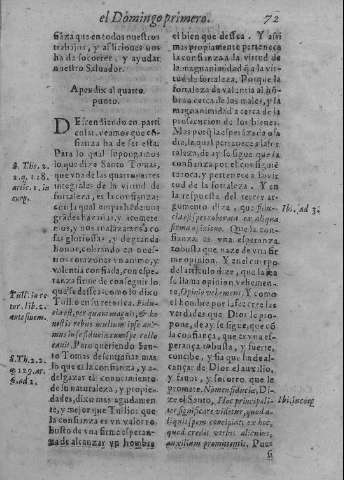 el Domingo primero. 72
fiança que en todos nuestros
trabajos, y aflicciones nos
ha de socorrer, y ayudar
nuestro Saluador.
Apendix al quarto
punto.
DEscendiendo en parti
cular, veamos que con
fiança ha de ser esta.
Para lo qual supongamos
lo que dize Santo Tomas,
que vna de las quatro partes
integrales de la virtud de
fortaleza, es la confiança:
con la qual emprehende
grandes hazañas, y acomete
mos, y nos
sas gloriosas, y de grande
honor, cobrando en nue-
stros coraçones vn animo, y
valentia confiada, con espe-
rança firme de conseguir lo
que se dessea: como lo dixo
Tulio en su retorica. Fidu-
cia est, per quam magnis, & ho
nestis rebus multum ipse ani-
mus in se fiduciam spe collo
cauit. Pero queriendo San-
to Tomas desentrañar mas
lo que es la confiança, y a-
delgazar el conocimiento
de su naturaleza, y propie-
dades, dixo muy agudamen-
te, y mejor que Tulio: que
la confiança es vn valor ro-
busto de vna firme esperan-
ça de alcançar vn hombre
S. Tho. 2.
2. q. 128.
artic. 1. in
corp.
Tull. in re
tor. lib. 2.
ante finem.
S. Th. 2. 2.
q. 129. ar.
6. ad 2.
el bien que dessea. Y assi
mas propiamente pertenece
la confiança a la virtud de
la magnanimidad q̃ a la vir-
tud de fortaleza. Porque la
fortaleza da valentia al hõ-
bra cerca de los males, y la
magnanimidad acerca de la
prosecucion de los bienes.
Mas porq̃ la esperança o la-
dia, la qual pertenece a la for-
taleza, de ay se sigue que la
confiança por el consiguiẽ
te toca, y pertenece a la vir-
tud de la fortaleza. Y en
la respuesta del tercer ar-
gumento dize, que
roborata ex aliqua
firma opinione. Que la con-
fiança es vna esperança
robusta que nace de vna fir-
me opinion. Y en el cuerpo
del articulo dize, que la
llama opinion vehemen-
te, Opinio vehemens. Y como
el hombre por la fe cree las
verdades que Dios le pro-
pone, de ay se sigue, que có
la confiança, que es vna es-
perança robusta, y fuerte,
concibe, y fia que ha de al-
cançar de Dios el auxilio,
y fauor, y socorro que le
promete. Nomen fiduciæ, Di-
ze el Santo, Hoc principali-
ter significare videtur, quod a-
liquis spem concipiat ex hoc,
quod credit verbis alicuius,
auxilium promittentis. Pues
Ibi. ad 3.
Ibi. in corp.